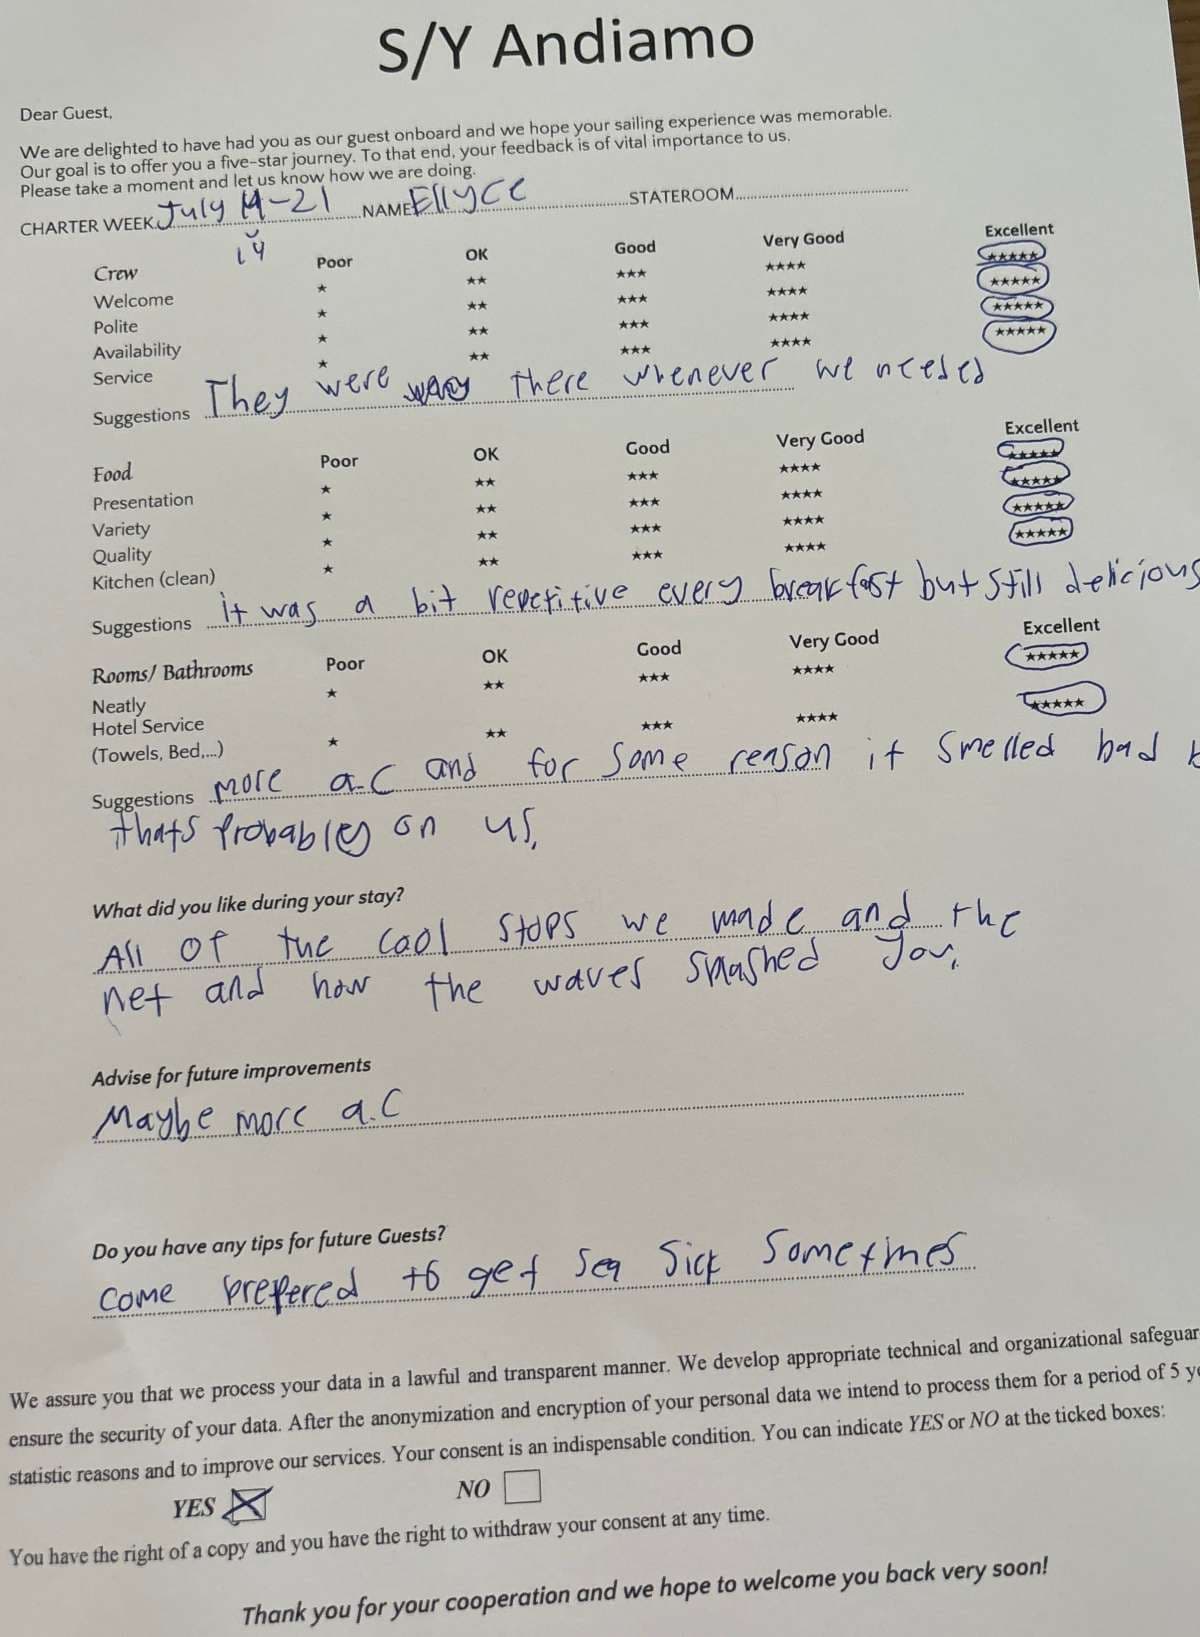 S/Y Andiamo
Dear Guest,
We are delighted to have had you as our guest onboard and we hope your sailing experience was memorable.
Our goal is to offer you a five-star journey. To that end, your feedback is of vital importance to us.
Please take a moment and let us know how we are doing.
CHARTER WEEK July 14-21 NAME Ellyce STATEROOM
14
Crew Poor OK Good Very Good Excellent
Welcome ★ ★★ ★★★ ★★★★ ★★★★★
Polite ★ ★★ ★★★ ★★★★ ★★★★★
Availability ★ ★★ ★★★ ★★★★ ★★★★★
Service ★ ★★ ★★★ ★★★★ ★★★★★
Suggestions They were there whenever we needed
Food Poor OK Good Very Good Excellent
Presentation ★ ★★ ★★★ ★★★★ ★★★★★
Variety ★ ★★ ★★★ ★★★★ ★★★★★
Quality ★ ★★ ★★★ ★★★★ ★★★★★
Kitchen (clean) ★ ★★ ★★★ ★★★★ ★★★★★
Suggestions it was a bit repetitive every breakfast but still delicious
Rooms/ Bathrooms Poor OK Good Very Good Excellent
Neatly ★ ★★ ★★★ ★★★★ ★★★★★
Hotel Service
(Towels, Bed,...) ★ ★★ ★★★ ★★★★ ★★★★★
Suggestions more a.c and for some reason it smelled bad
thats probabley on us.
What did you like during your stay?
All of the cool stops we made and the
net and how the waves splashed you.
Advise for future improvements
Maybe more a.c
Do you have any tips for future Guests?
come prepered to get sea sick sometimes
We assure you that we process your data in a lawful and transparent manner. We develop appropriate technical and organizational safeguar
ensure the security of your data. After the anonymization and encryption of your personal data we intend to process them for a period of 5 ye
statistic reasons and to improve our services. Your consent is an indispensable condition. You can indicate YES or NO at the ticked boxes:
YES NO
You have the right of a copy and you have the right to withdraw your consent at any time.
Thank you for your cooperation and we hope to welcome you back very soon!